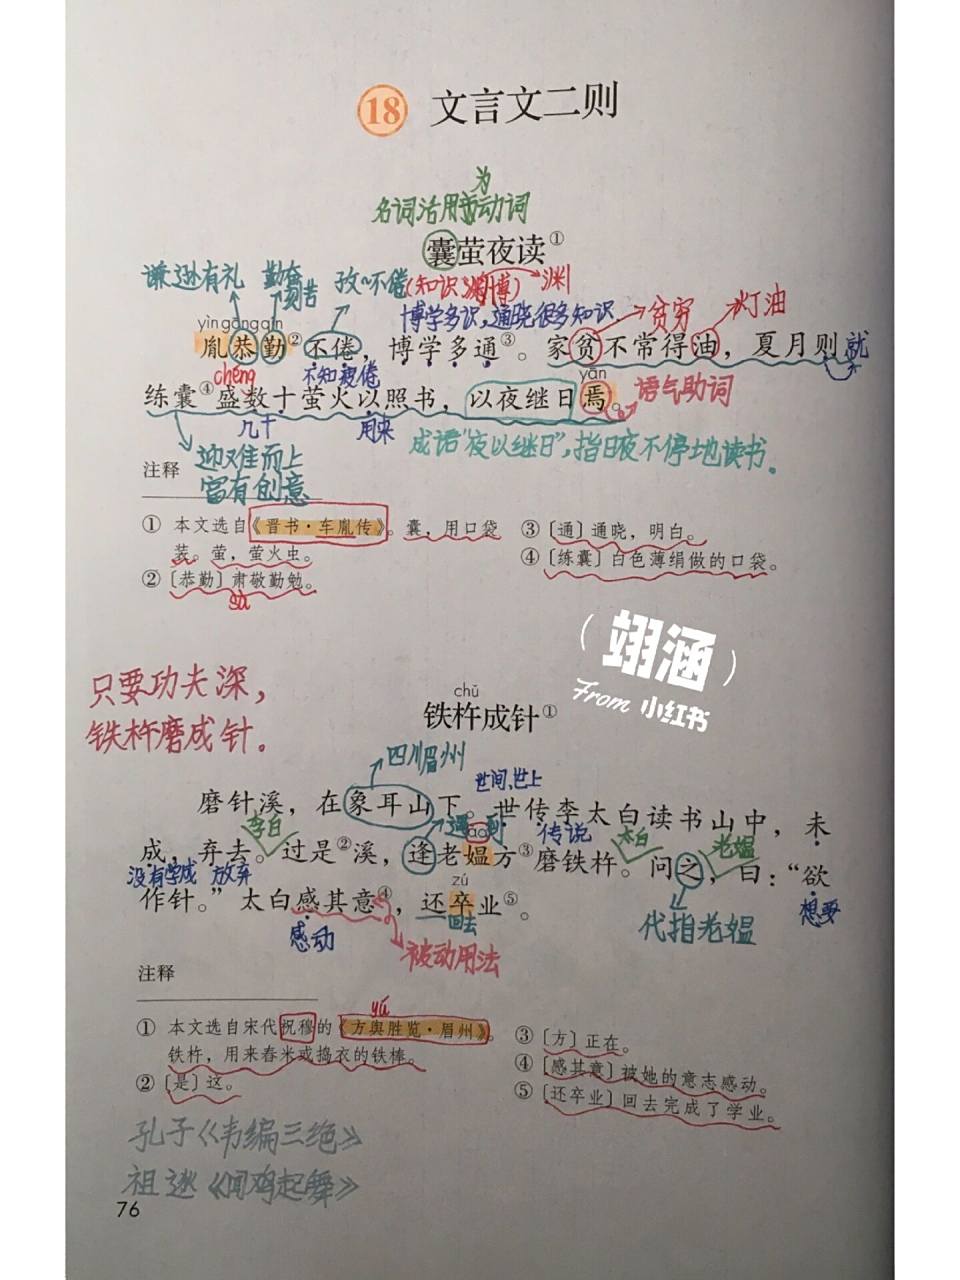 18 文言文二则
为
名词活用动词
囊萤夜读①
谦逊有礼 勤奋刻苦 孜~不倦(知识渊博) 渊
博学多识，通晓很多知识 贫穷 灯油
yìn gōng qín
胤恭勤②不倦，博学多通③。家贫不常得油，夏月则 就
chéng 不知疲倦 yān
练囊④盛数十萤火以照书，以夜继日焉。 语气助词
几十 用来
成语“夜以继日”，指日夜不停地读书。
迎难而上
富有创意
注释
① 本文选自《晋书·车胤传》。囊，用口袋
装。萤，萤火虫。
② 〔恭勤〕肃敬勤勉。
sù
③ 〔通〕通晓，明白。
④ 〔练囊〕白色薄绢做的口袋。
（翊涵）
From 小红书
只要功夫深，
铁杵磨成针。
chǔ
铁杵成针①
四川眉州
世间、世上
磨针溪，在象耳山下。世传李太白读书山中，未
李白 遇到 ǎo 传说 太白 老媪
成，弃去。过是②溪，逢老媪方③磨铁杵。问之，曰：“欲
没有学成 放弃 zú 想要
作针。”太白感其意④，还卒业⑤。
感动 回去 代指老媪
被动用法
注释
yú
① 本文选自宋代祝穆的《方舆胜览·眉州》。
铁杵，用来舂米或捣衣的铁棒。
② 〔是〕这。
③ 〔方〕正在。
④ 〔感其意〕被她的意志感动。
⑤ 〔还卒业〕回去完成了学业。
孔子《韦编三绝》
祖逖《闻鸡起舞》
76